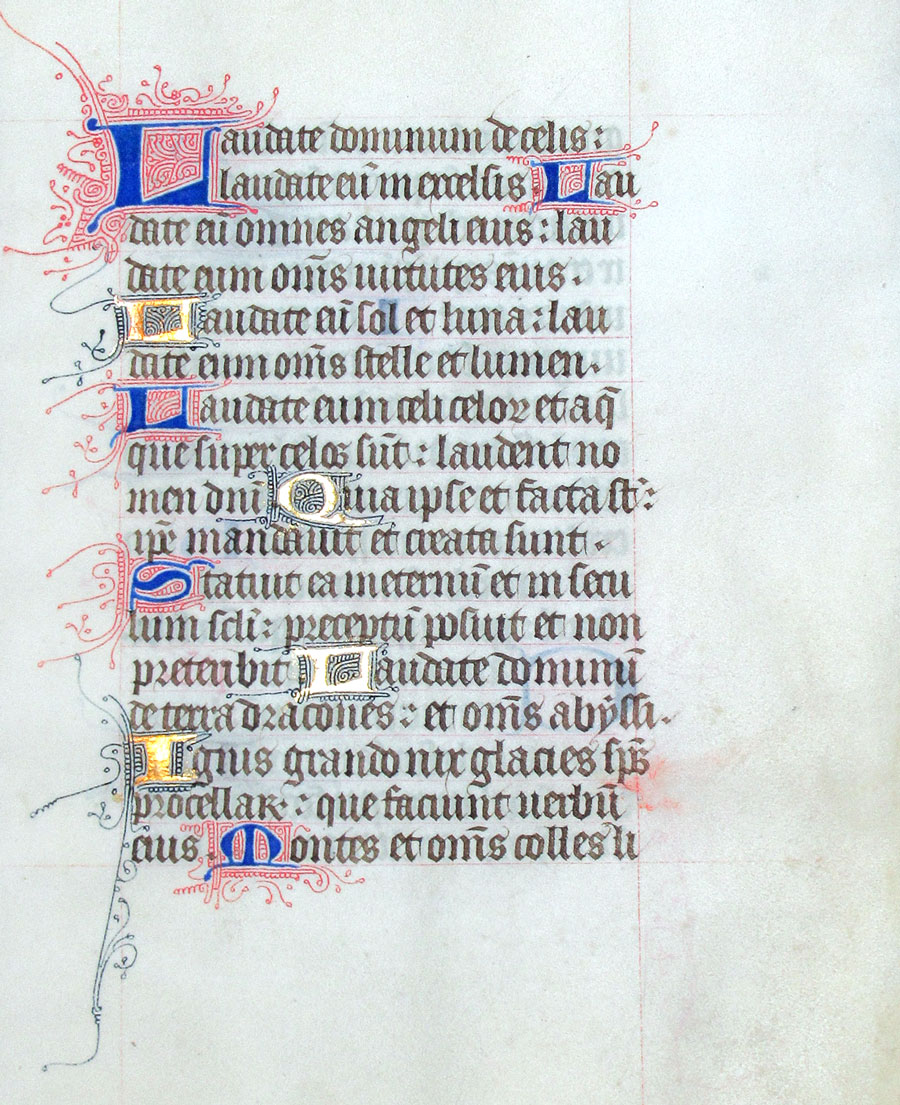 Laudate dominum de celis:
laudate eū in excelsis Lau
date eū omnes angeli eius: lau
date eum om̄s uirtutes eius.
Laudate eū sol et luna: lau
date eum om̄s stelle et lumen.
Laudate eum celi celoꝝ et aq̄
que super celos sūt: laudent no
men dn̄i Quia ipse et facta st̄:
ip̄e mandauit et creata sunt.
Statuit ea in eternū et in secu
lum scl̄i: preceptū posuit et non
preteribit Laudate dominū
de terra dracones: et om̄s abyssi.
Ignis grando nix glacies sp̄s
procellaꝝ: que faciunt uerbū
eius. Montes et om̄s colles li